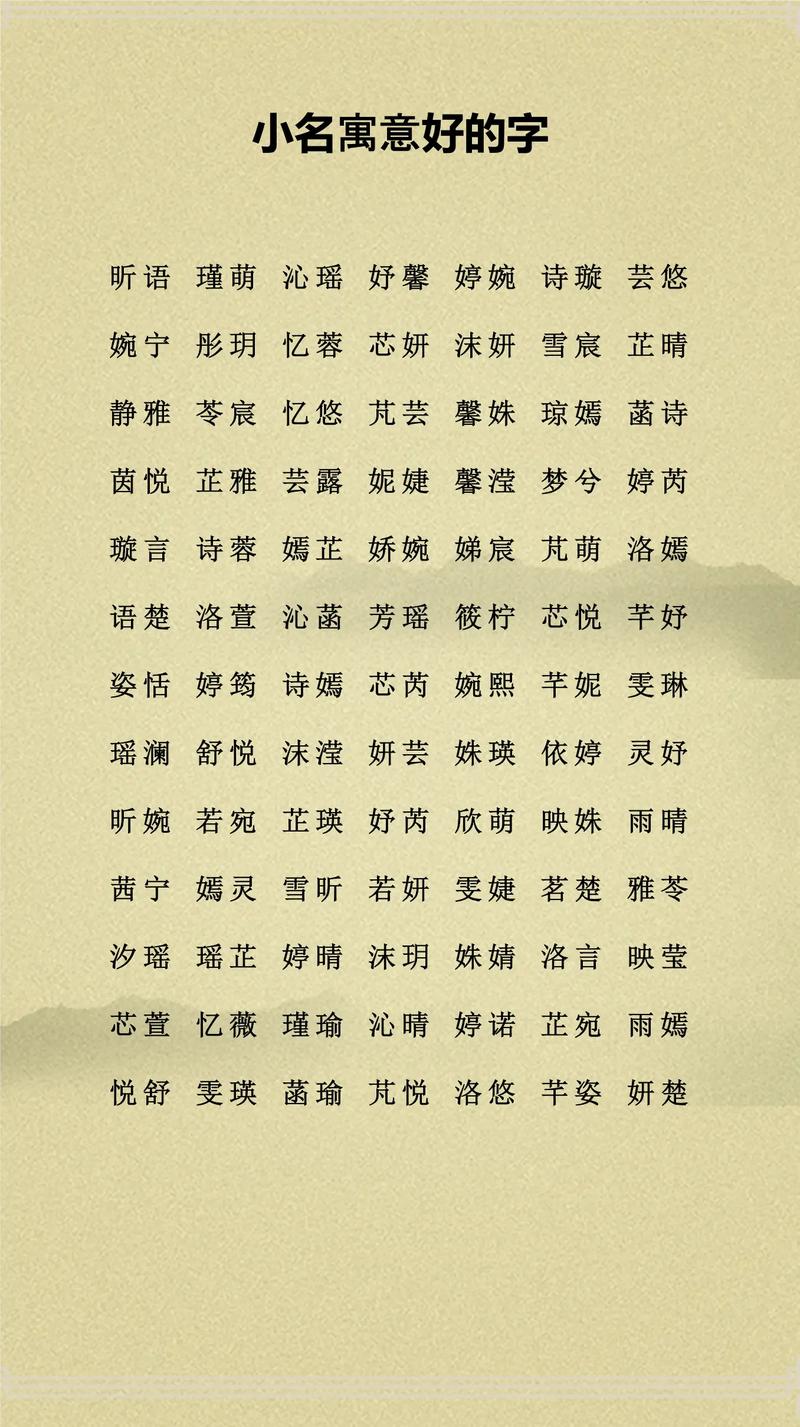 小名寓意好的字
昕语 瑾萌 沁瑶 妤馨 婷婉 诗璇 芸悠
婉宁 彤玥 忆蓉 芯妍 沫妍 雪宸 芷晴
静雅 苓宸 忆悠 芃芸 馨姝 琼嫣 菡诗
茵悦 芷雅 芸露 妮婕 馨滢 梦兮 婷芮
璇言 诗蓉 嫣芷 娇婉 娣宸 芃萌 洛嫣
语楚 洛萱 沁菡 芳瑶 筱柠 芯悦 芊妤
姿恬 婷筠 诗嫣 芯芮 婉熙 芊妮 雯琳
瑶澜 舒悦 沫滢 妍芸 姝瑛 依婷 灵妤
昕婉 若宛 芷瑛 妤芮 欣萌 映姝 雨晴
茜宁 嫣灵 雪昕 若妍 雯婕 茗楚 雅苓
汐瑶 瑶芷 婷晴 沫玥 姝婧 洛言 映莹
芯萱 忆薇 瑾瑜 沁晴 婷诺 芷宛 雨嫣
悦舒 雯瑛 菡瑜 芃悦 洛悠 芊姿 妍楚